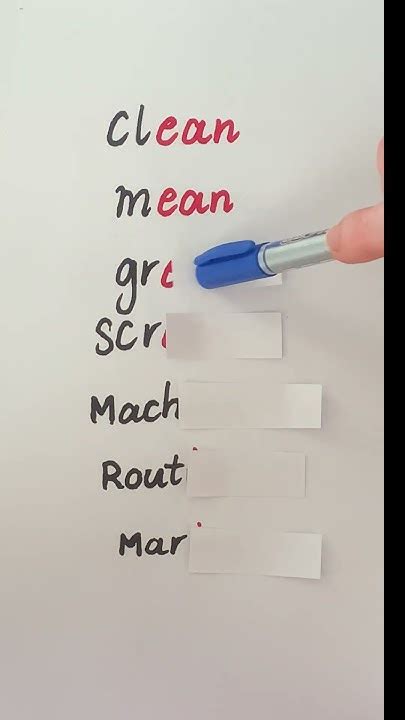 clean
mean
gr
scr
Mach
Rout
Mar